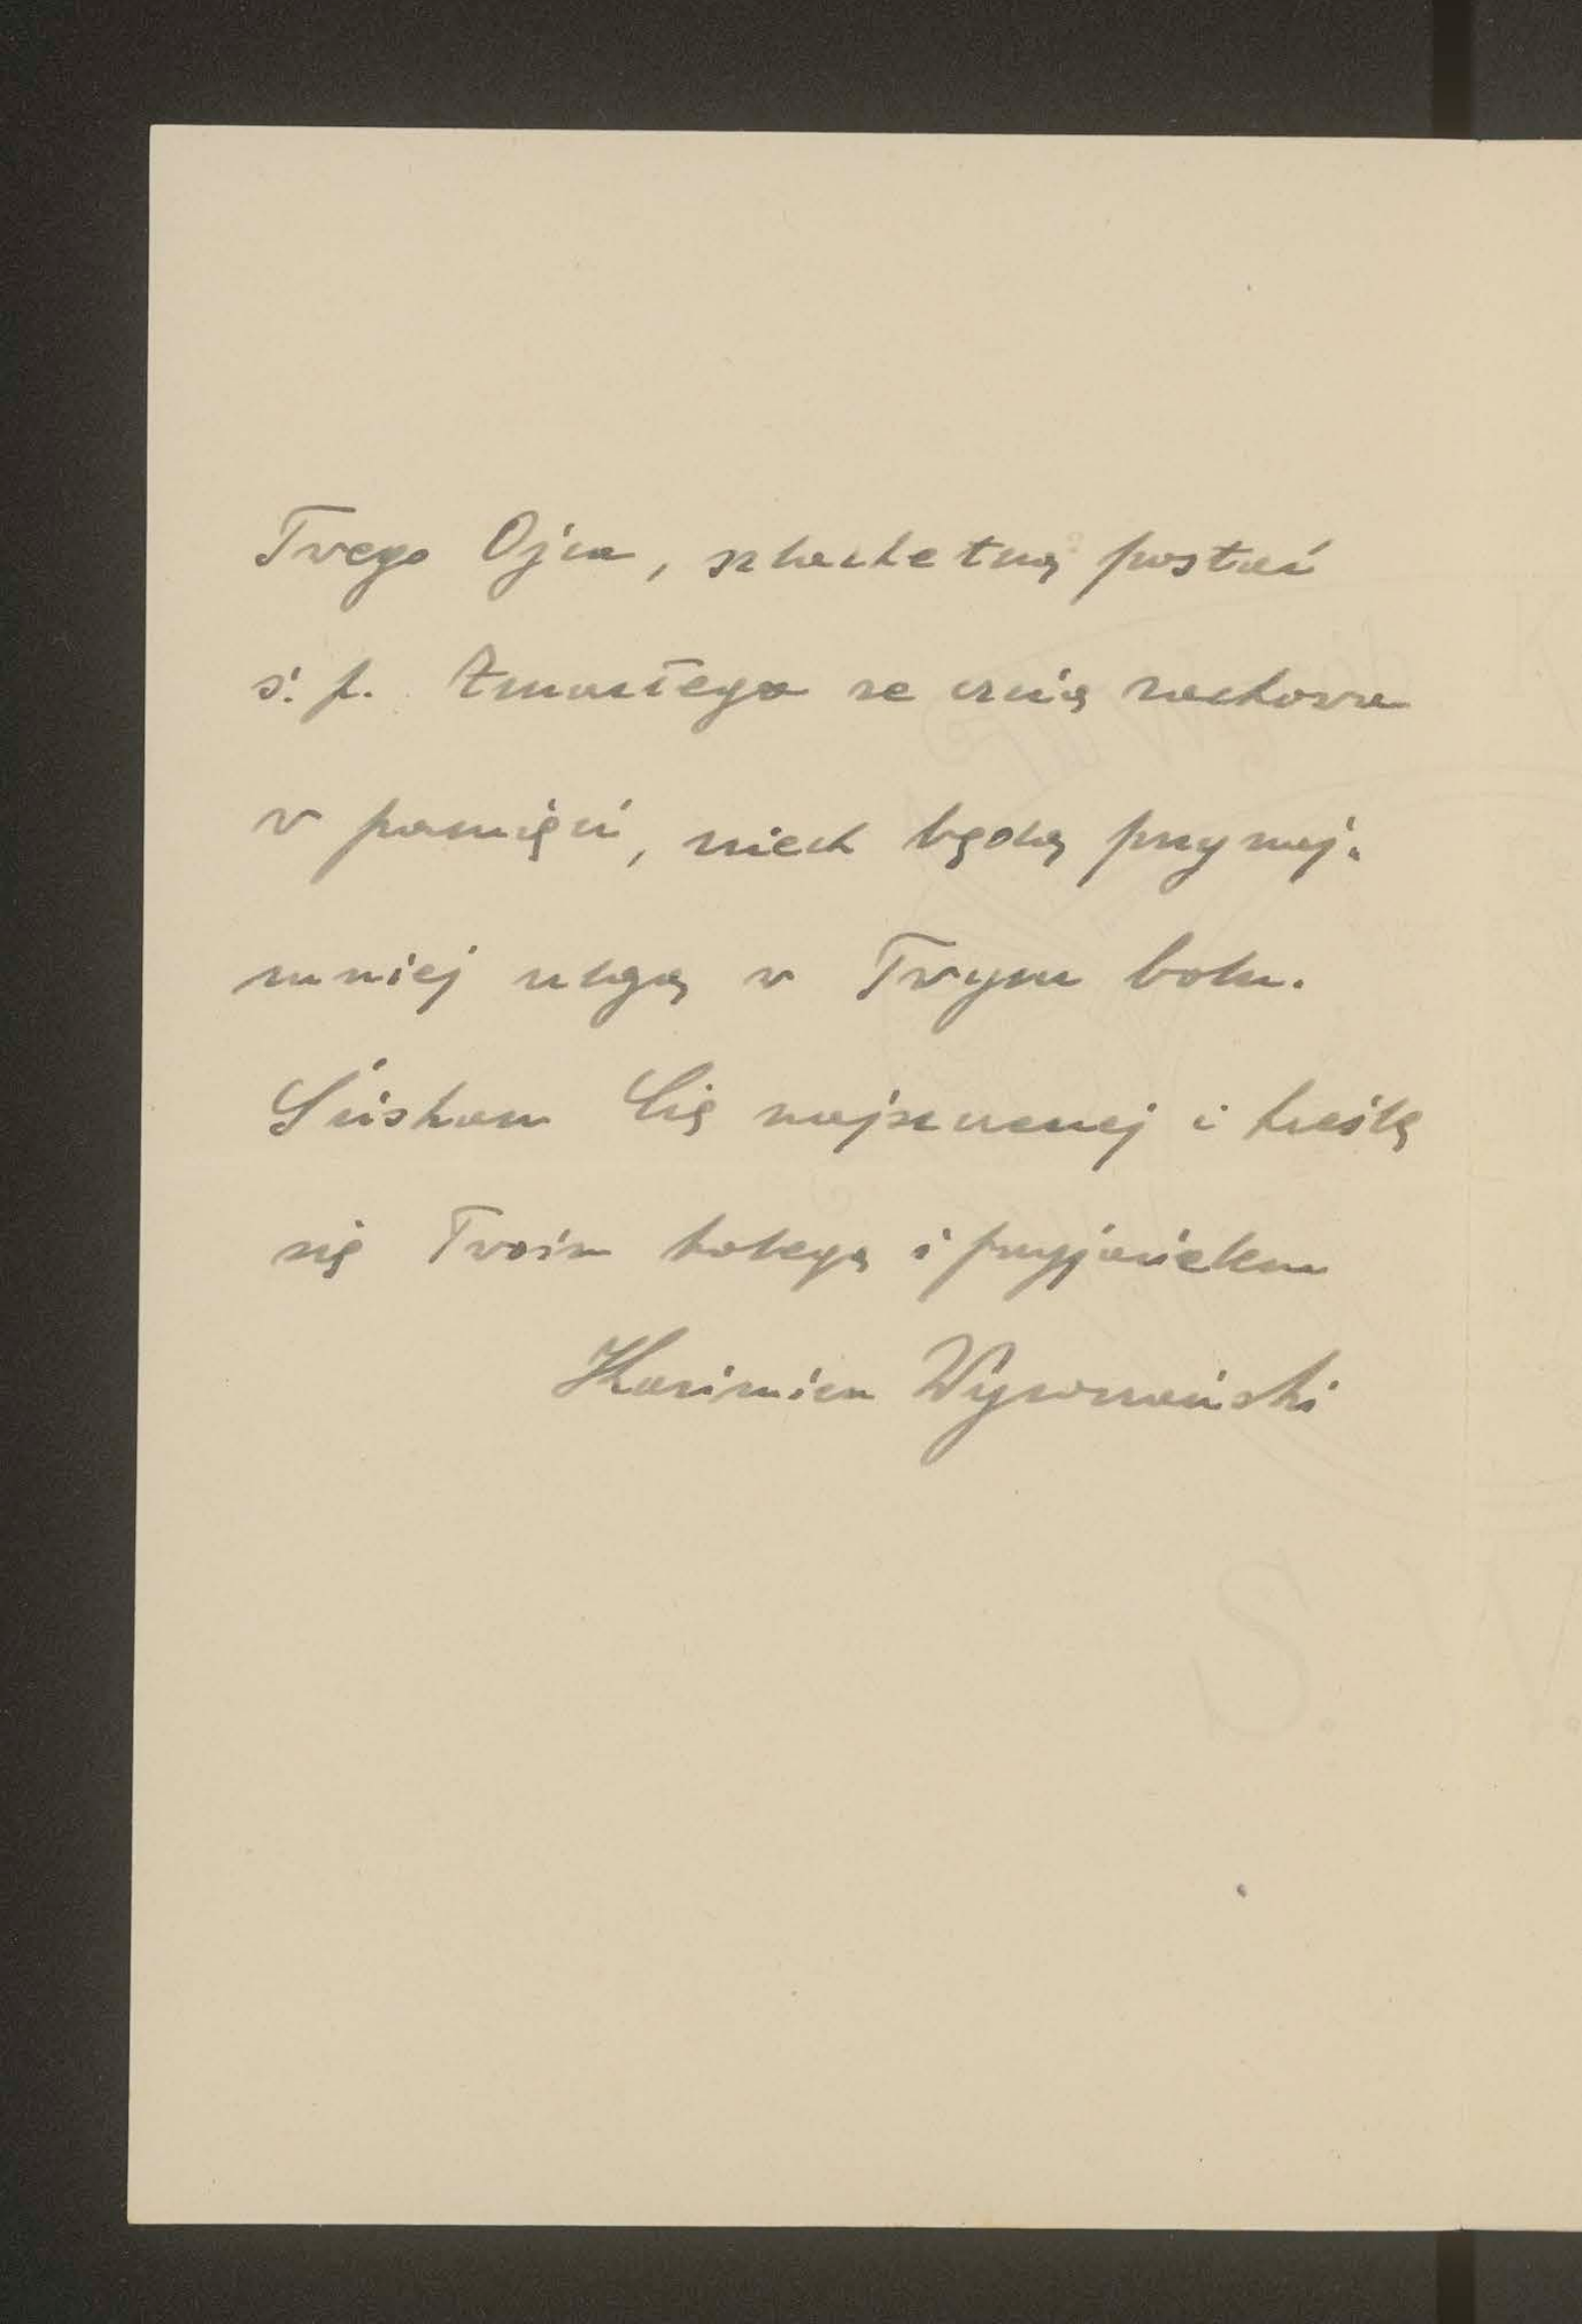 Twego Ojca, szlachetną postać
ś. p. Zmarłego ze czcią zachowa
w pamięci, niech będą przynaj-
mniej ulgą w Twym bólu.
Ściskam Cię najszczerzej i kreślę
się Twoim kolegą i przyjacielem
Kazimierz